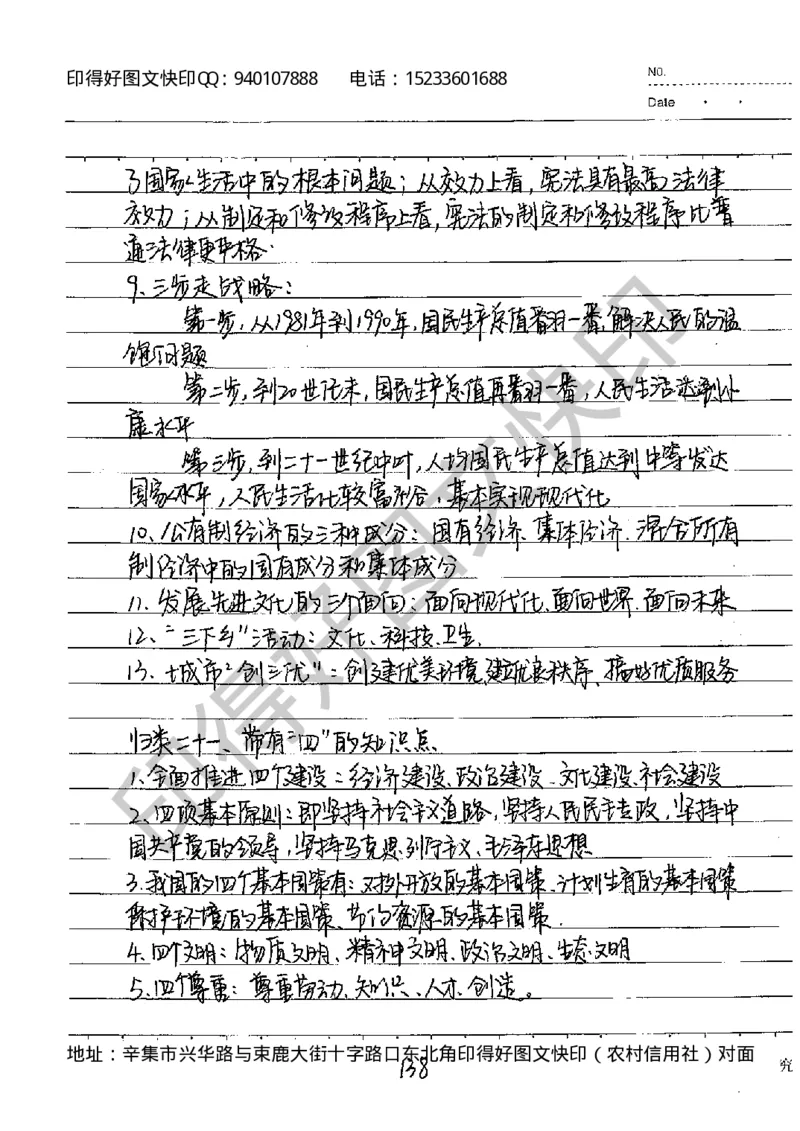 印得好图文快印QQ：940107888 电话：15233601688
No.
Date
了国家生活中的根本问题；从效力上看，宪法具有最高法律
效力；从制定和修改程序上看，宪法的制定和修改程序比普
通法律更严格.
9、三步走战略：
第一步，从1981年到1990年，国民生产总值番羽一番，解决人民的温
饱问题
第二步，到20世纪末，国民生产总值再番羽一番，人民生活达到小
康水平
第三步，到二十一世纪中叶，人均国民生产总值达到中等发达
国家水平，人民生活比较富裕，基本实现现代化
10、公有制经济的三种成分：国有经济、集体经济、混合所有
制经济中的国有成分和集体成分
11、发展先进文化的三个面向：面向现代化、面向世界、面向未来
12、“三下乡”活动：文化、科技、卫生、
13、城市“创三优”：创建优美环境、建立优良秩序、搞好优质服务
归类二十一、带有“四”的知识点
1、全面推进四个建设：经济建设、政治建设、文化建设、社会建设
2、四项基本原则：即坚持社会主义道路，坚持人民民主专政，坚持中
国共产党的领导，坚持马克思列宁主义、毛泽东思想
3、我国的四个基本国策有：对外开放的基本国策、计划生育的基本国策
保护环境的基本国策、节约资源的基本国策.
4、四个文明：物质文明、精神文明、政治文明、生态文明
5、四个尊重：尊重劳动、知识、人才、创造。
地址：辛集市兴华路与束鹿大街十字路口东北角印得好图文快印（农村信用社）对面
138
究
印得好图文快印